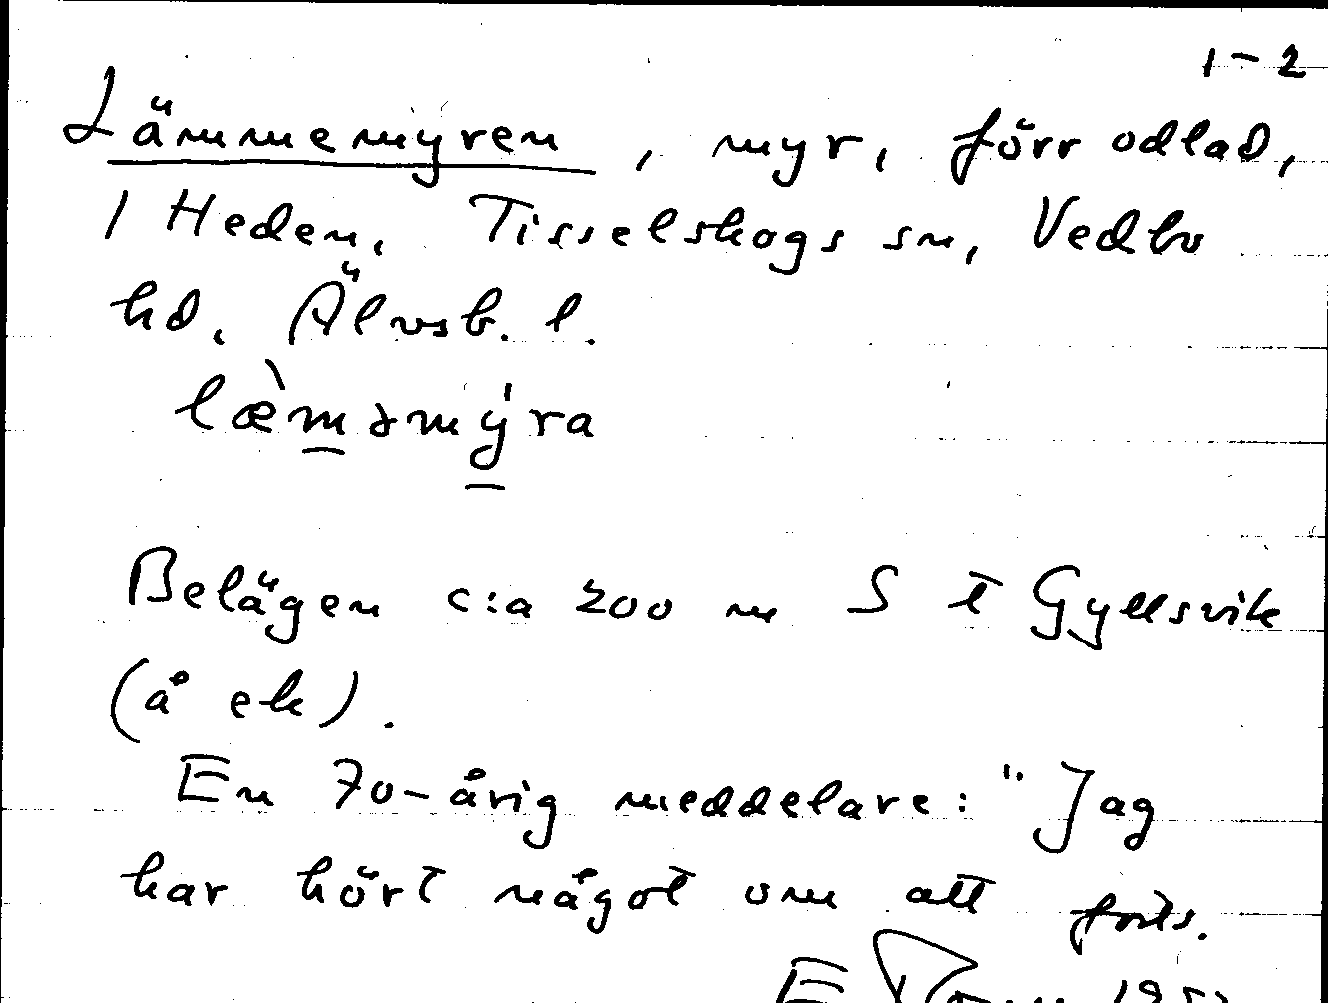 1-2
Lämmemyren, myr, förr odlad,
1 Heden, Tisselskogs sn, Vedbo
hd, Älvsb. l.
læ̀məmýra
Belägen c:a 200 m S t Gyllsvik
(å ek).
En 70-årig meddelare: "Jag
har hört något om att forts.
E